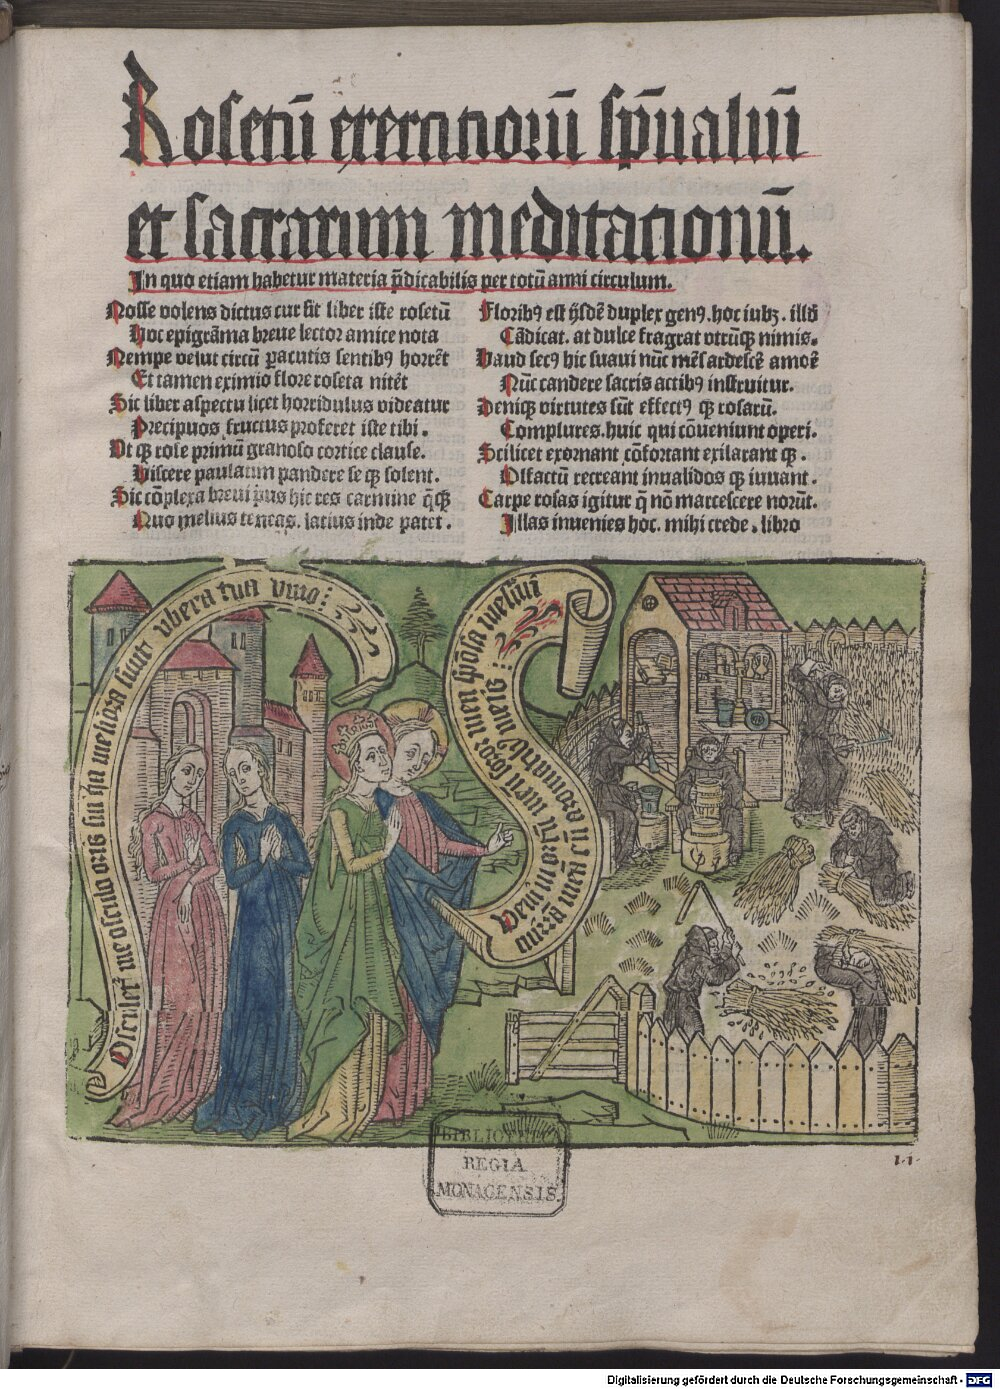 Rosetū exercitiorū sp̄ualiū
et sacrarum meditationū.
In quo etiam habetur materia p̄dicabilis per totū anni circulum.
Nosse volens dictus cur sit liber iste rosetū
Hoc epigrāma breve lector amice nota
Nempe velut circū p̱acutis sentibꝰ horrēt
Et tamen eximio flore roseta nitēt
Sic liber aspectu licet horridulus videatur
Precipuos fructus proferet iste tibi.
Ut qꝫ rose primū granoso cortice clause.
Hiscere paulatim pandere se qꝫ solent.
Sic cōplexa brevi pͥus hic res carmine q̄qꝫ
Quo melius teneas. latius inde patet.
Floribꝰ est ijsdē duplex genꝰ. hoc iubꝫ. illd̄
Cādicat. at dulce fragrat utrūqꝫ nimis.
Haud secꝰ hic suavi nūc mēs ardescē amoē
Nūc candere sacris actibꝰ instruitur.
Deniqꝫ virtutes sūt effectꝰ qꝫ rosarū.
Complures. huic qui cōveniunt operi.
Scilicet exornant cōfortant exilarant qꝫ.
Olfactū recreant invalidos qꝫ iuvant.
Carpe rosas igitur q̄ nō marcescere norūt.
Illas invenies hoc. mihi crede. libro
Osculet᷑ me osculo oris sui q̄a meliora sunt ubera tua vino:
Veni in ortū meū soror mea sp̄osa messui
mirrā meā cū aromatibꝰ meis:
1·1·
BIBLIOTHECA
REGIA
MONACENSIS.
Digitalisierung gefördert durch die Deutsche Forschungsgemeinschaft - DFG